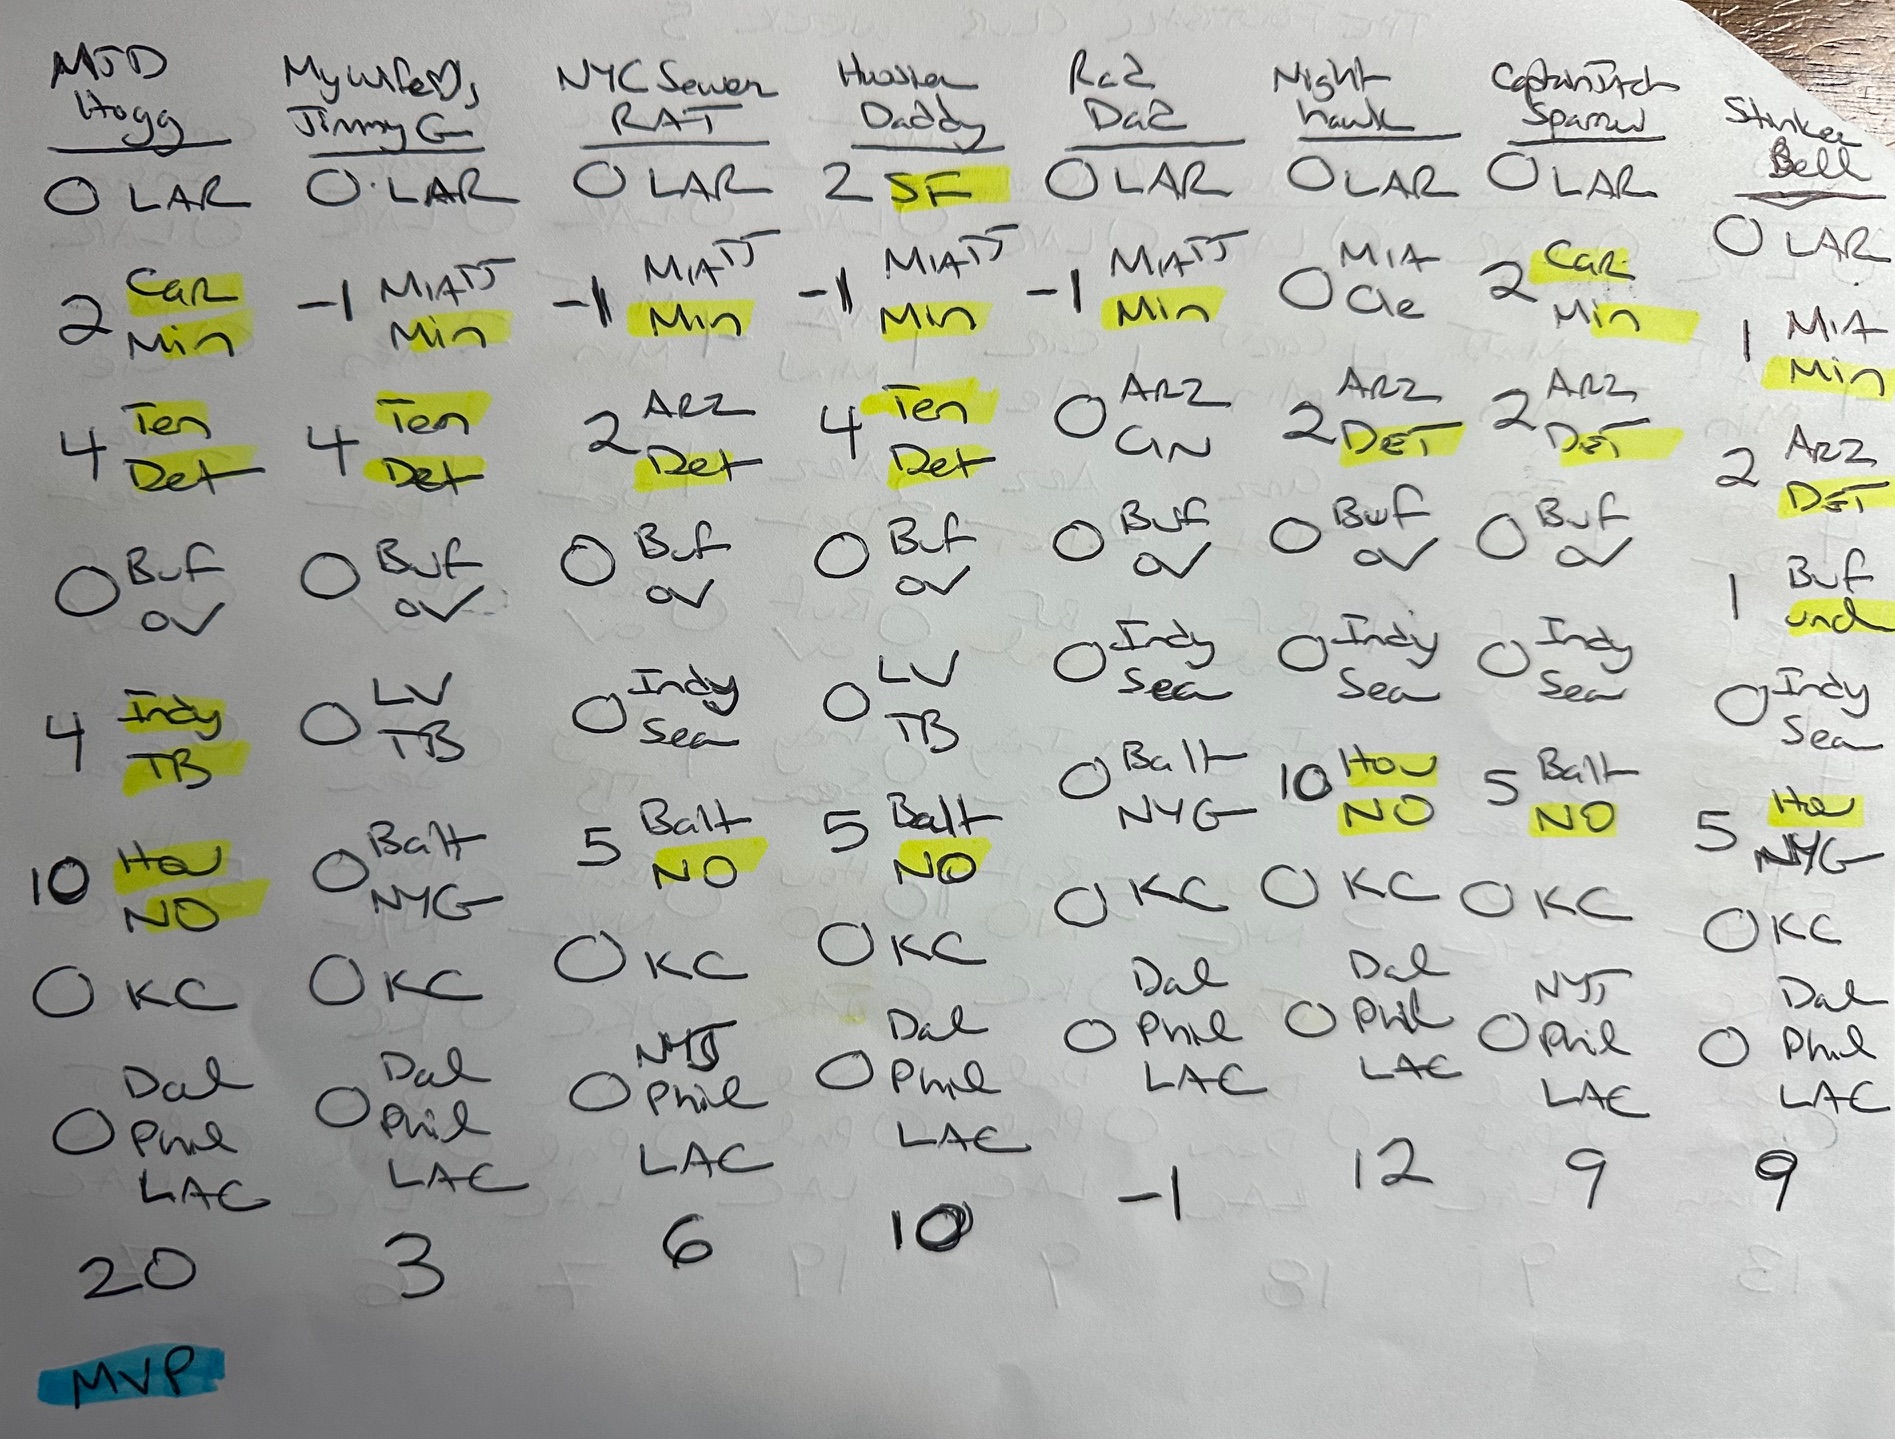 MJD
Hogg
0 LAR
2 Car
Min
4 Ten
Det
0 Buf
ov
4 Indy
TB
10 Hou
NO
0 KC
Dal
0 Phil
LAC
20
MVP
My wife ♡s
Jimmy G
0 LAR
-1 MIA JJ
Min
4 Ten
Det
0 Buf
ov
0 LV
TB
0 Balt
NYG
0 KC
Dal
0 Phil
LAC
3
NYC Sewer
RAT
0 LAR
-1 MIA JJ
Min
2 ARZ
Det
0 Buf
ov
0 Indy
Sea
5 Balt
NO
0 KC
NYJ
0 Phil
LAC
6
Daddy
2 SF
-1 MIA JJ
Min
4 Ten
Det
0 Buf
ov
0 LV
TB
5 Balt
NO
0 KC
Dal
0 Phil
LAC
10
0 LAR
-1 MIA JJ
Min
0 ARZ
CIN
0 Buf
ov
0 Indy
Sea
0 Balt
NYG
0 KC
Dal
0 Phil
LAC
-1
Night
hawk
0 LAR
0 MIA
Cle
2 ARZ
DET
0 Buf
ov
0 Indy
Sea
10 Hou
NO
0 KC
Dal
0 Phil
LAC
12
Captain
Sparrow
0 LAR
2 Car
Min
2 ARZ
DET
0 Buf
ov
0 Indy
Sea
5 Balt
NO
0 KC
NYJ
0 Phil
LAC
9
Stinker
Bell
0 LAR
1 MIA
Min
2 ARZ
DET
1 Buf
und
0 Indy
Sea
5 Hou
NYG
0 KC
Dal
0 Phil
LAC
9